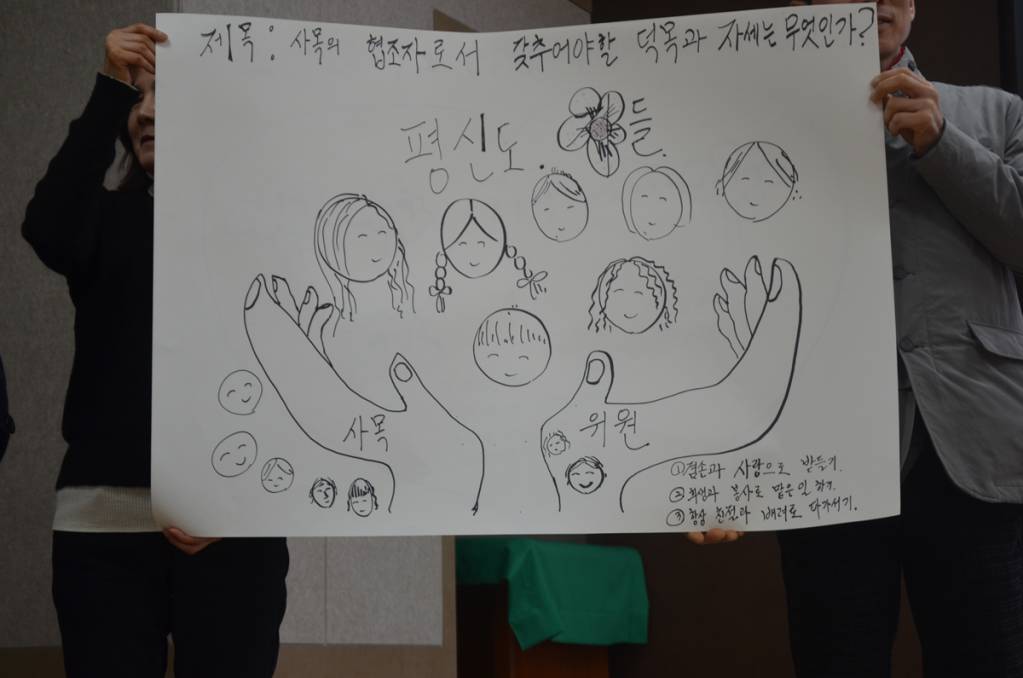 제목 : 사목의 협조자로서 갖추어야할 덕목과 자세는 무엇인가?
평신도. 들.
사목
위원
① 겸손과 사랑으로 받들기.
② 희생과 봉사로 맡은 일 하기.
③ 항상 친절과 배려로 다가서기.